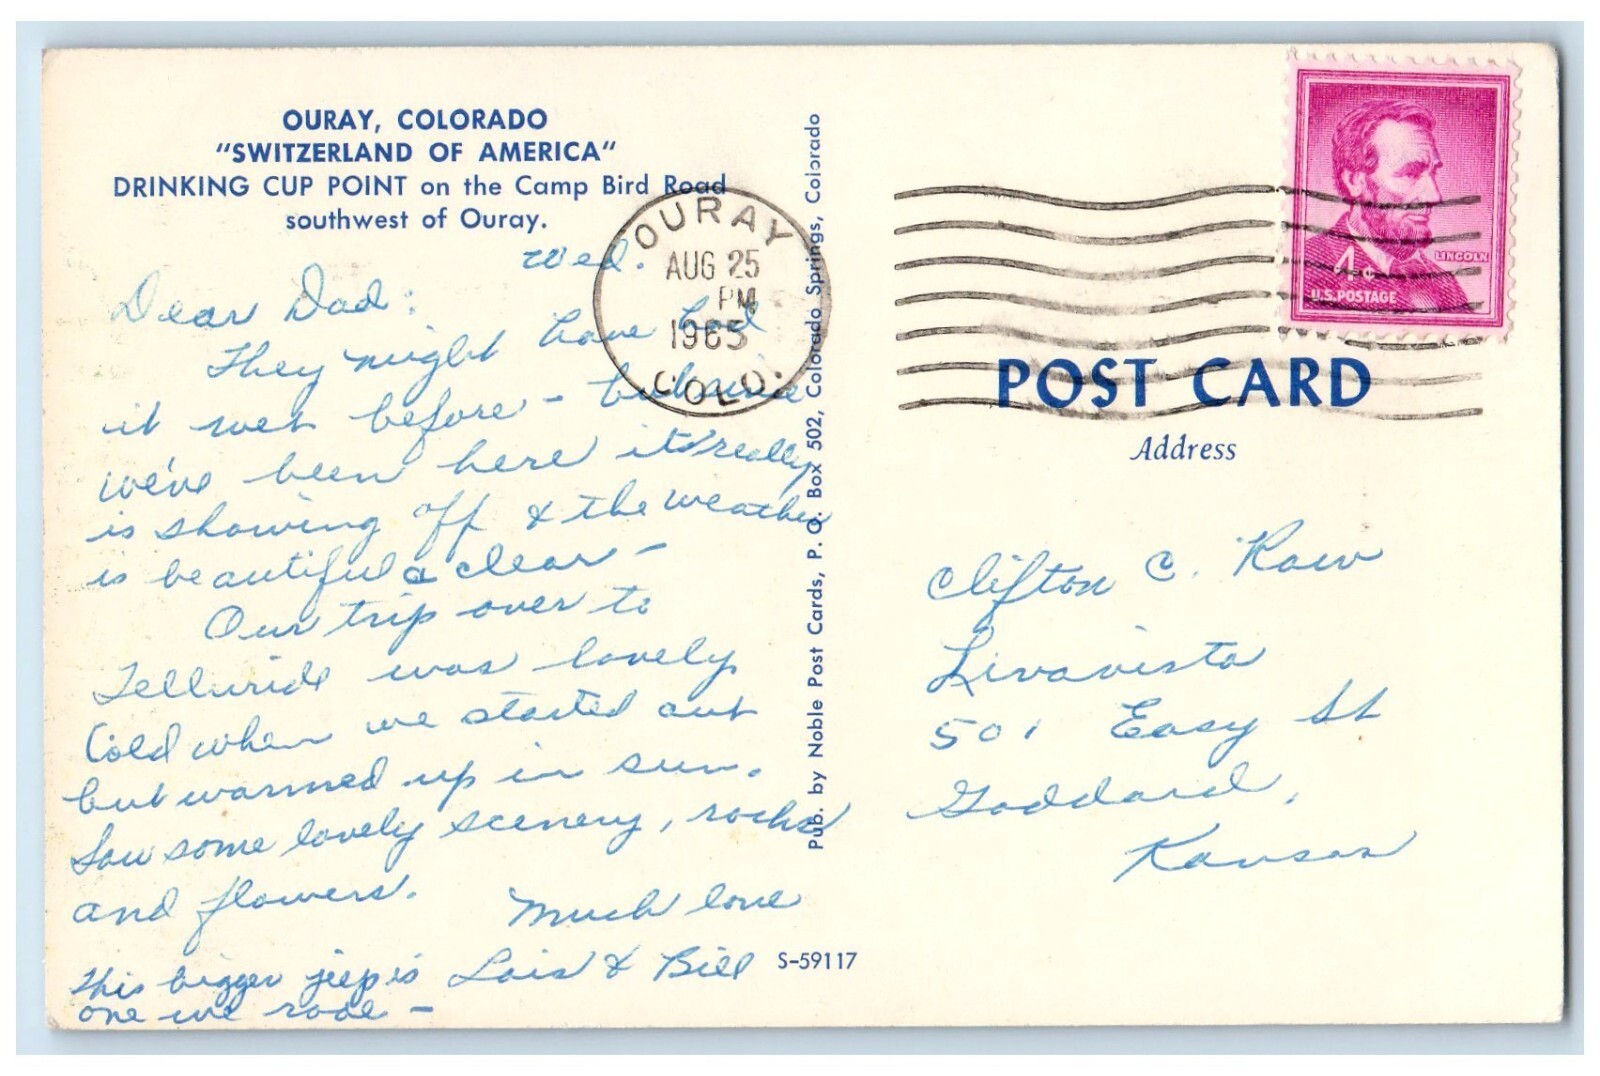 OURAY, COLORADO
"SWITZERLAND OF AMERICA"
DRINKING CUP POINT on the Camp Bird Road
southwest of Ouray.
Wed.
Dear Dad:
They might have had
it wet before - but since
we've been here it really
is showing off & the weather
is beautiful & clear -
Our trip over to
Telluride was lovely
Cold when we started out
but warmed up in sun.
Saw some lovely scenery, rocks
and flowers.
Much love
Lois & Bill
This bigger jeep is
one we rode -
S-59117
Pub. by Noble Post Cards, P. O. Box 502, Colorado Springs, Colorado
OURAY
AUG 25
PM
1965
COLO.
LINCOLN
4¢
U.S. POSTAGE
POST CARD
Address
Clifton C. Raw
Livavista
501 Easy St
Goddard,
Kansas